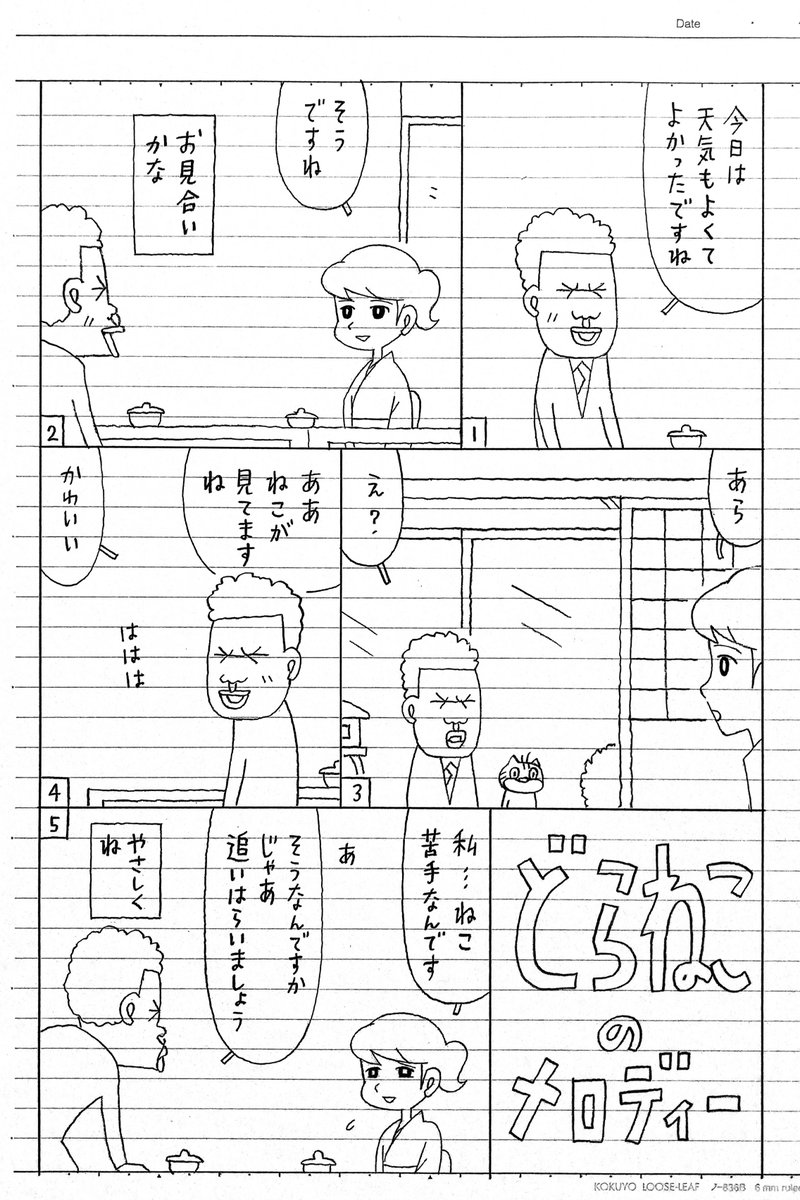 Date
今日は
天気もよくて
よかったですね
1
そう
ですね
お見合い
かな
2
あら
え？
3
ああ
ねこが
見てます
ね
かわいい
ははは
4
どらねこ
の
メロディー
私…ねこ
苦手なんです
あ
そうなんですか
じゃあ
追いはらいましょう
やさしく
ね
5
KOKUYO LOOSE-LEAF ノ-836B 6 mm ruled